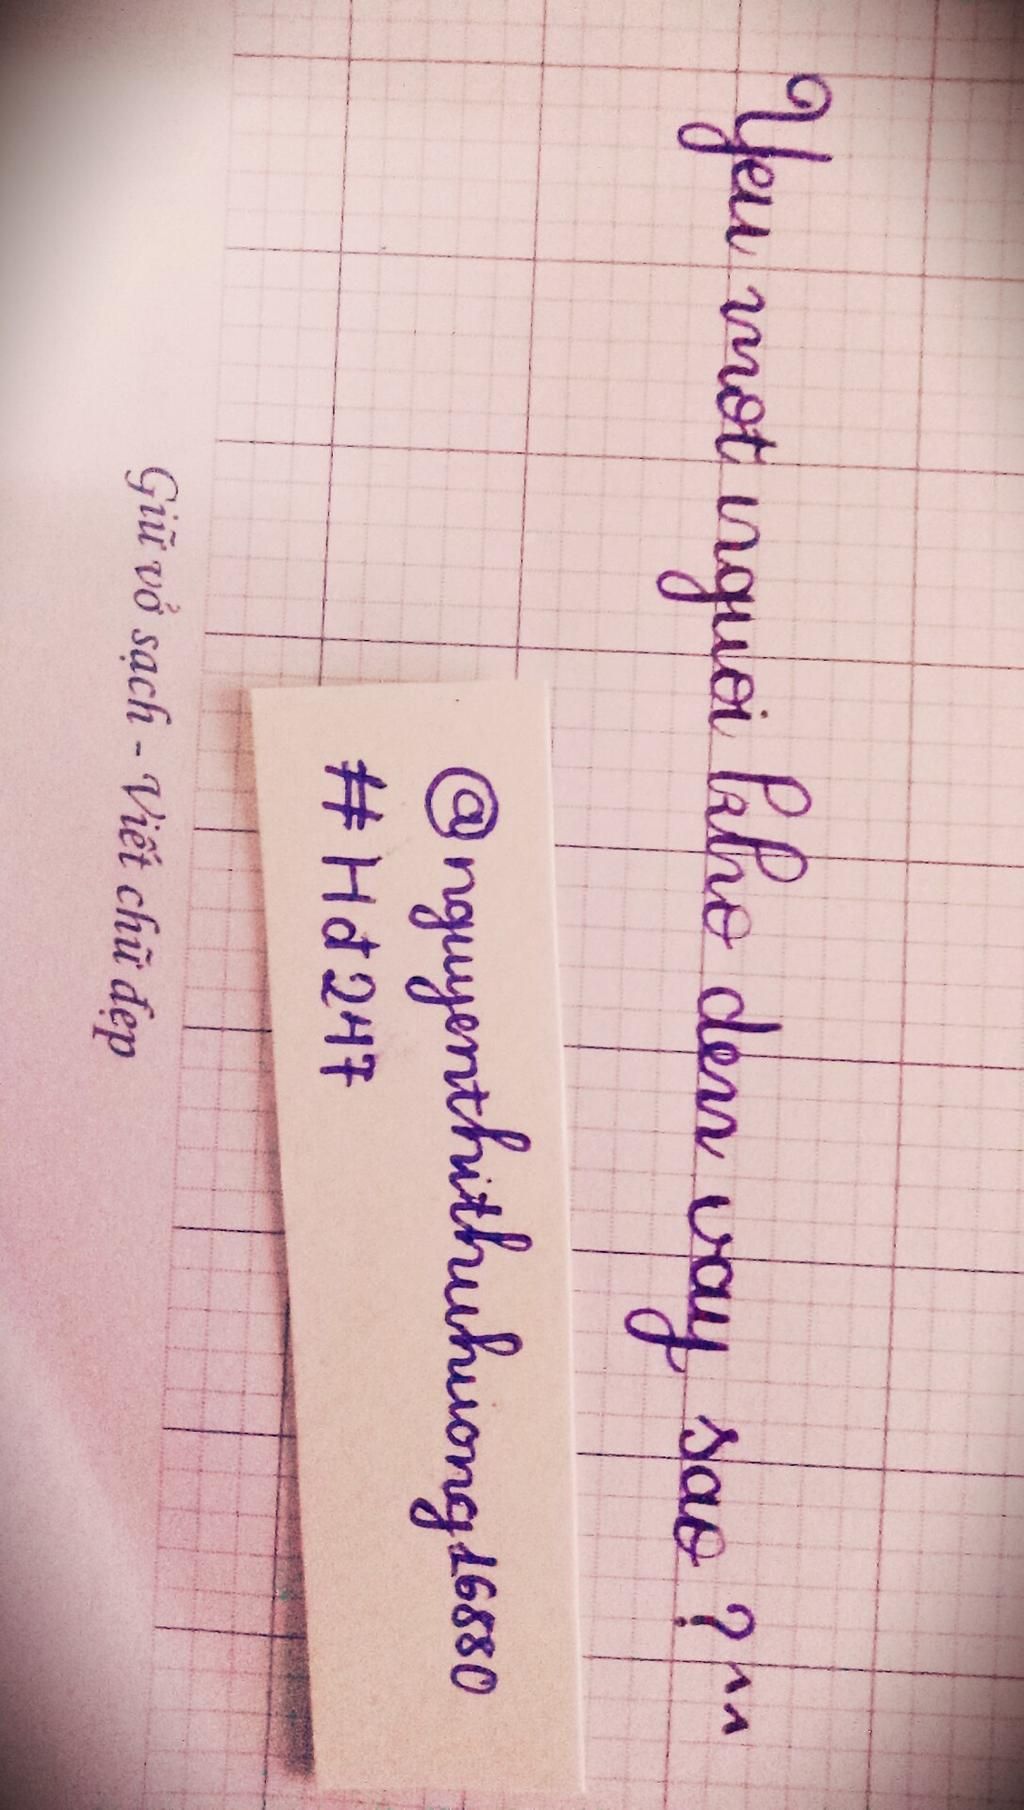 Yeu mot nguoi kho den vay sao ? ^^
@nguyenthithuhuong16880
# Hd247
Giữ vở sạch - Viết chữ đẹp